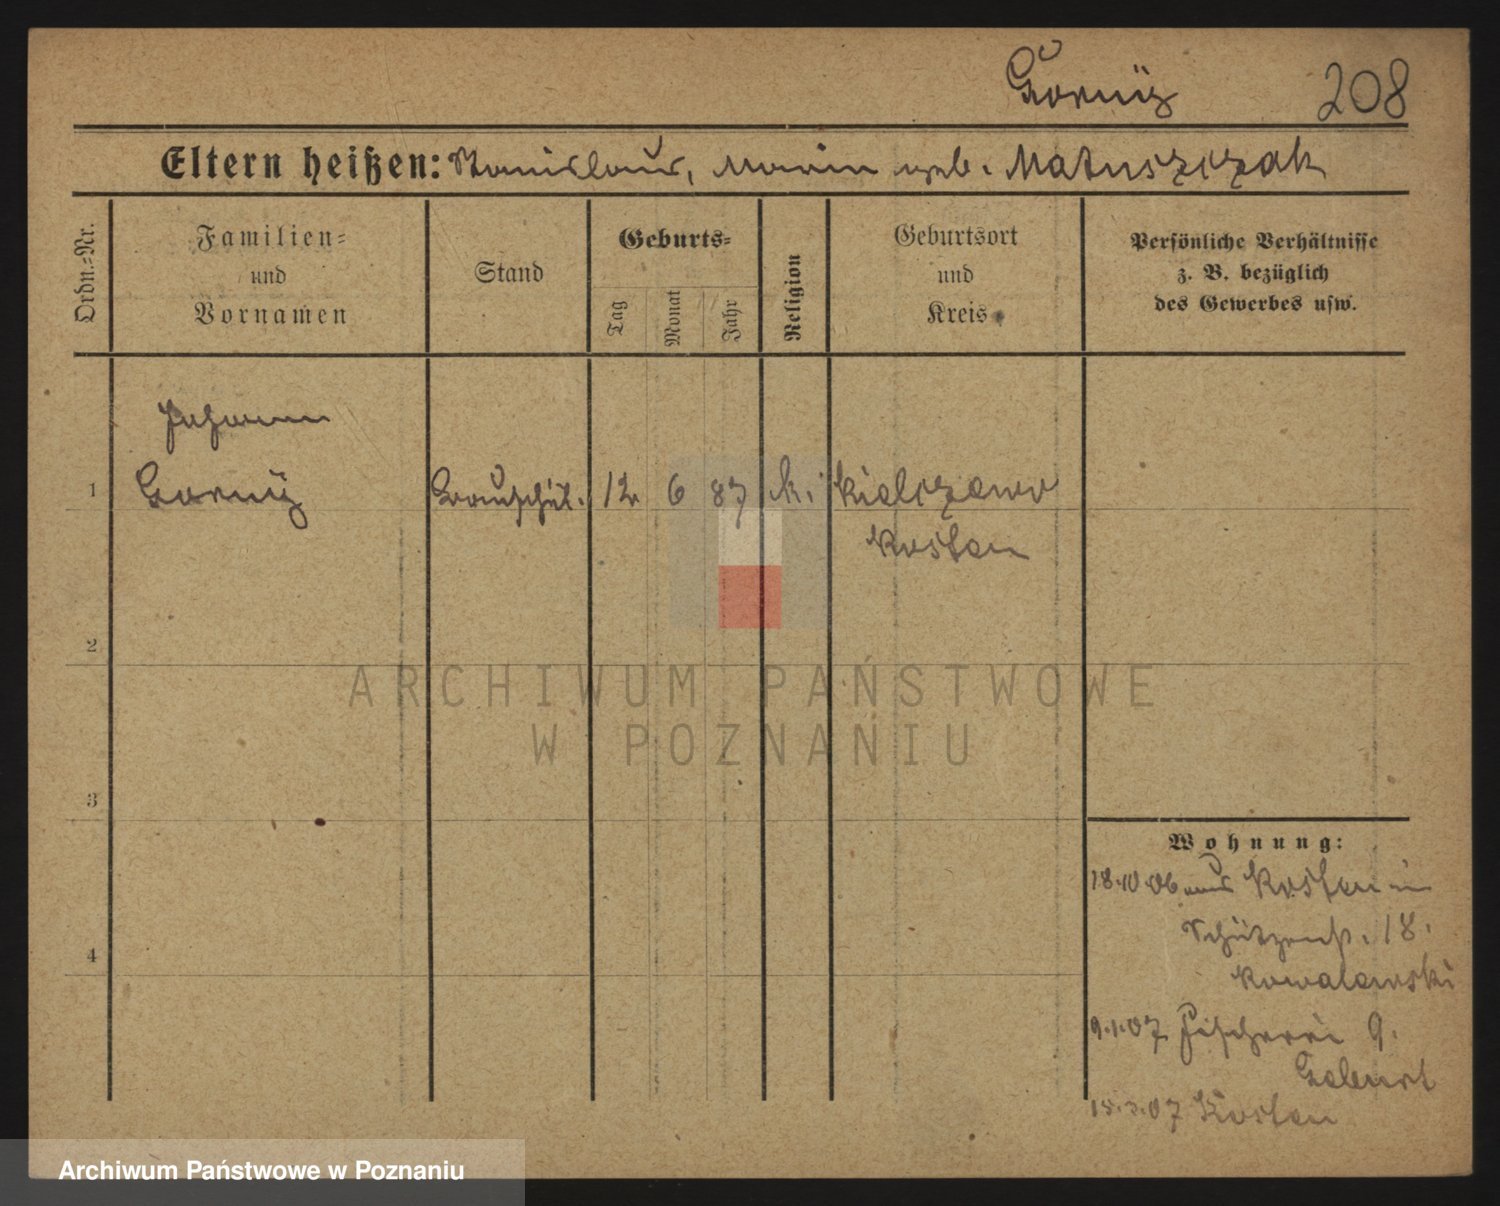 Górny 208
Eltern heißen: Stanislaus, Marie geb. Matuszczak
Ordn.-Nr.
Familien-
und
Vornamen
Stand
Geburts-
Tag
Monat
Jahr
Religion
Geburtsort
und
Kreis
Persönliche Verhältnisse
z. B. bezüglich
des Gewerbes usw.
Johann
1 Gorny 12 6 87 k. Kielczewo
Kosten
2
ARCHIWUM PAŃSTWOWE
W POZNANIU
3
Wohnung:
18.10.06 aus Kosten in
Schützenstr. 18.
Kowalewski
4
9.1.07 Fischerei 9.
07 Kosten
Archiwum Państwowe w Poznaniu